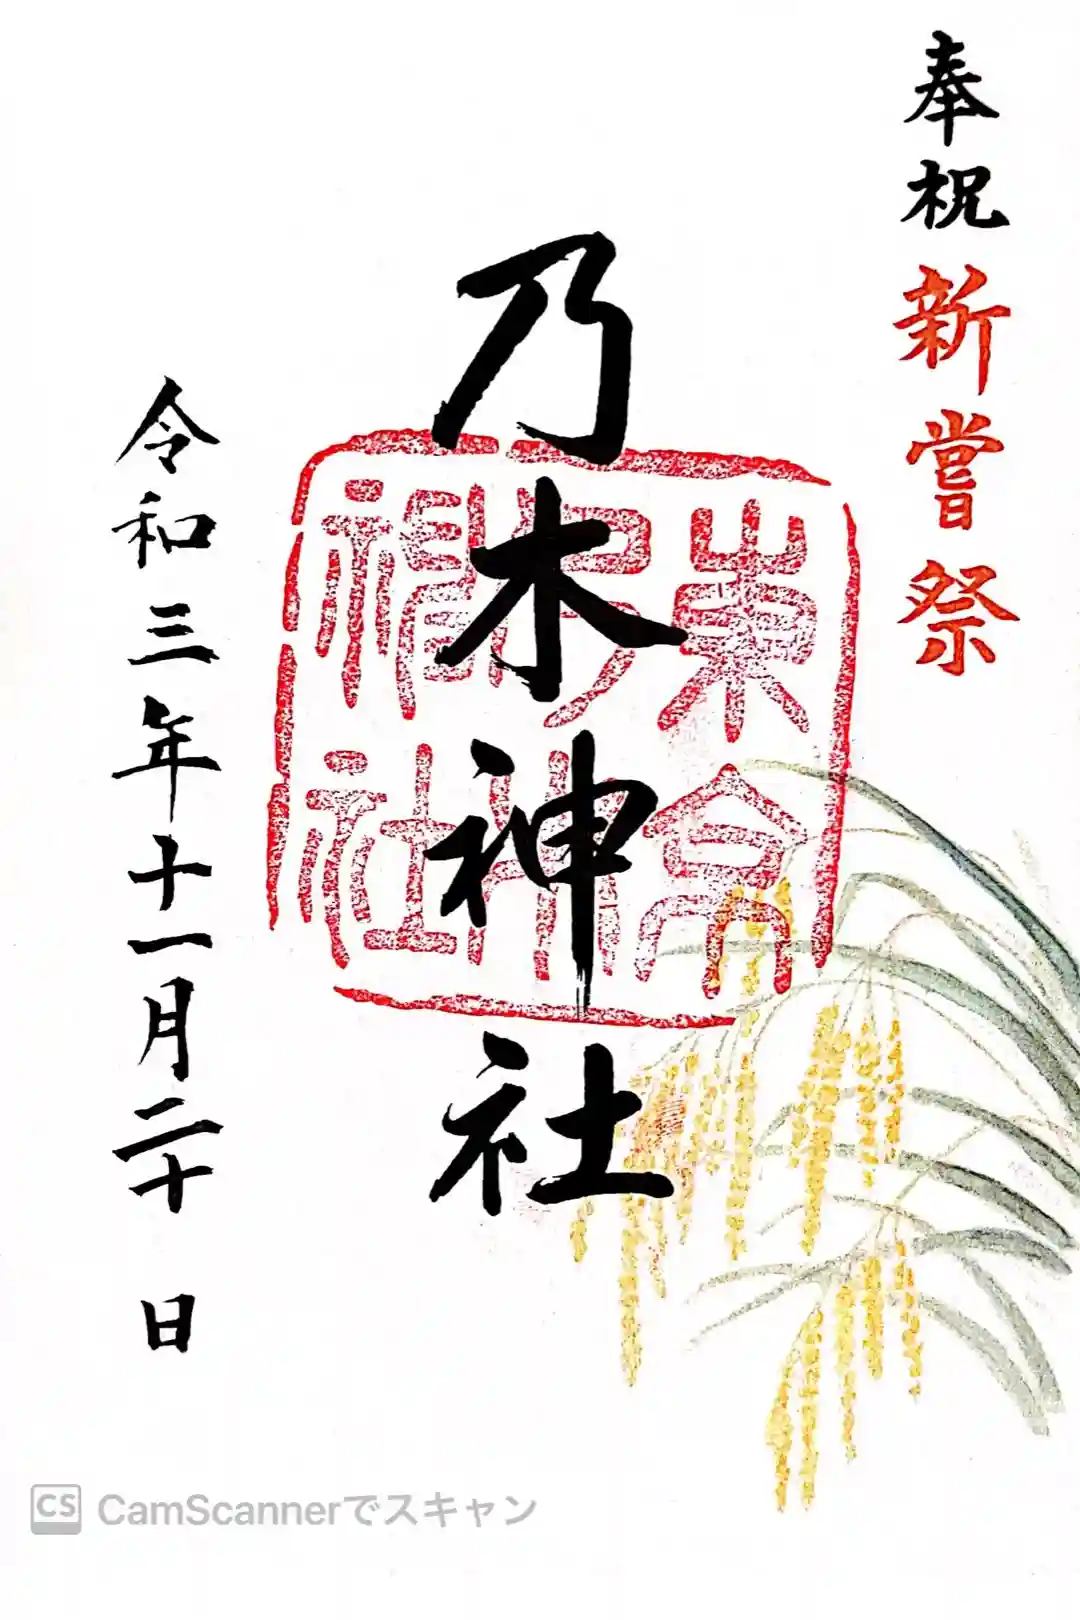 奉祝新嘗祭
乃木神社
東京乃木神社
令和三年十一月二十日
CS CamScannerでスキャン